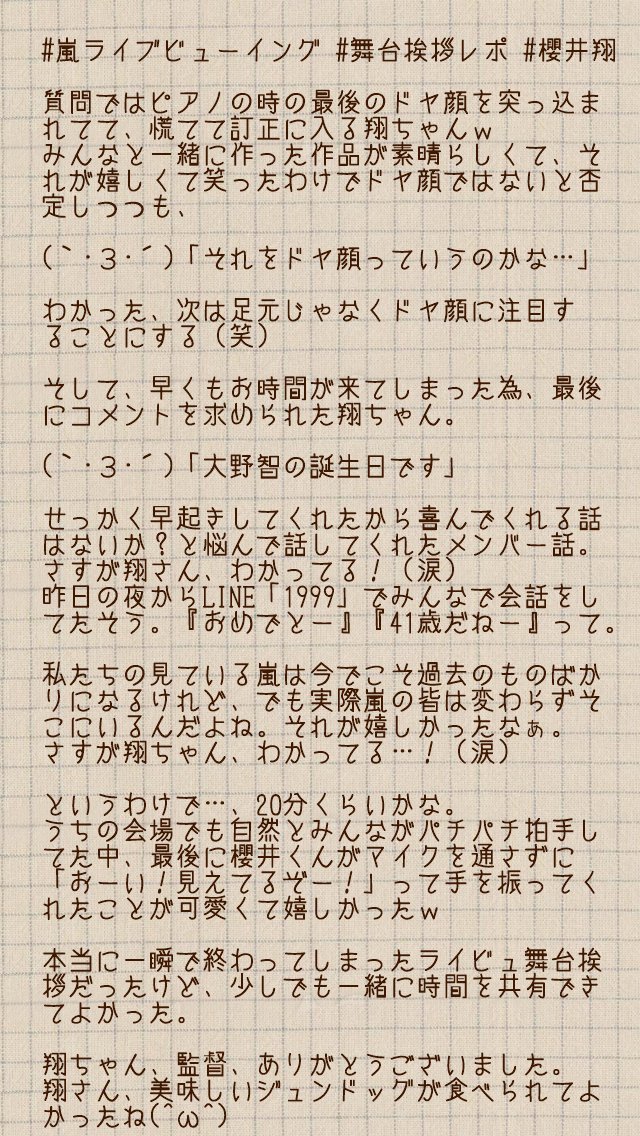 #嵐ライブビューイング #舞台挨拶レポ #櫻井翔
質問ではピアノの時の最後のドヤ顔を突っ込ま
れてて、慌てて訂正に入る翔ちゃんｗ
みんなと一緒に作った作品が素晴らしくて、そ
れが嬉しくて笑ったわけでドヤ顔ではないと否
定しつつも、
(｀･3･´)「それをドヤ顔っていうのかな…」
わかった、次は足元じゃなくドヤ顔に注目す
ることにする（笑）
そして、早くもお時間が来てしまった為、最後
にコメントを求められた翔ちゃん。
(｀･3･´)「大野智の誕生日です」
せっかく早起きしてくれたから喜んでくれる話
はないか？と悩んで話してくれたメンバー話。
さすが翔さん、わかってる！（涙）
昨日の夜からLINE「1999」でみんなで会話をし
てたそう。『おめでとー』『41歳だねー』って。
私たちの見ている嵐は今でこそ過去のものばか
りになるけれど、でも実際嵐の皆は変わらずそ
こにいるんだよね。それが嬉しかったなぁ。
さすが翔ちゃん、わかってる…！（涙）
というわけで…、20分くらいかな。
うちの会場でも自然とみんながパチパチ拍手し
てた中、最後に櫻井くんがマイクを通さずに
「おーい！見えてるぞー！」って手を振ってく
れたことが可愛くて嬉しかったｗ
本当に一瞬で終わってしまったライビュ舞台挨
拶だったけど、少しでも一緒に時間を共有でき
てよかった。
翔ちゃん、監督、ありがとうございました。
翔さん、美味しいジュンドッグが食べられてよ
かったね(^ω^)